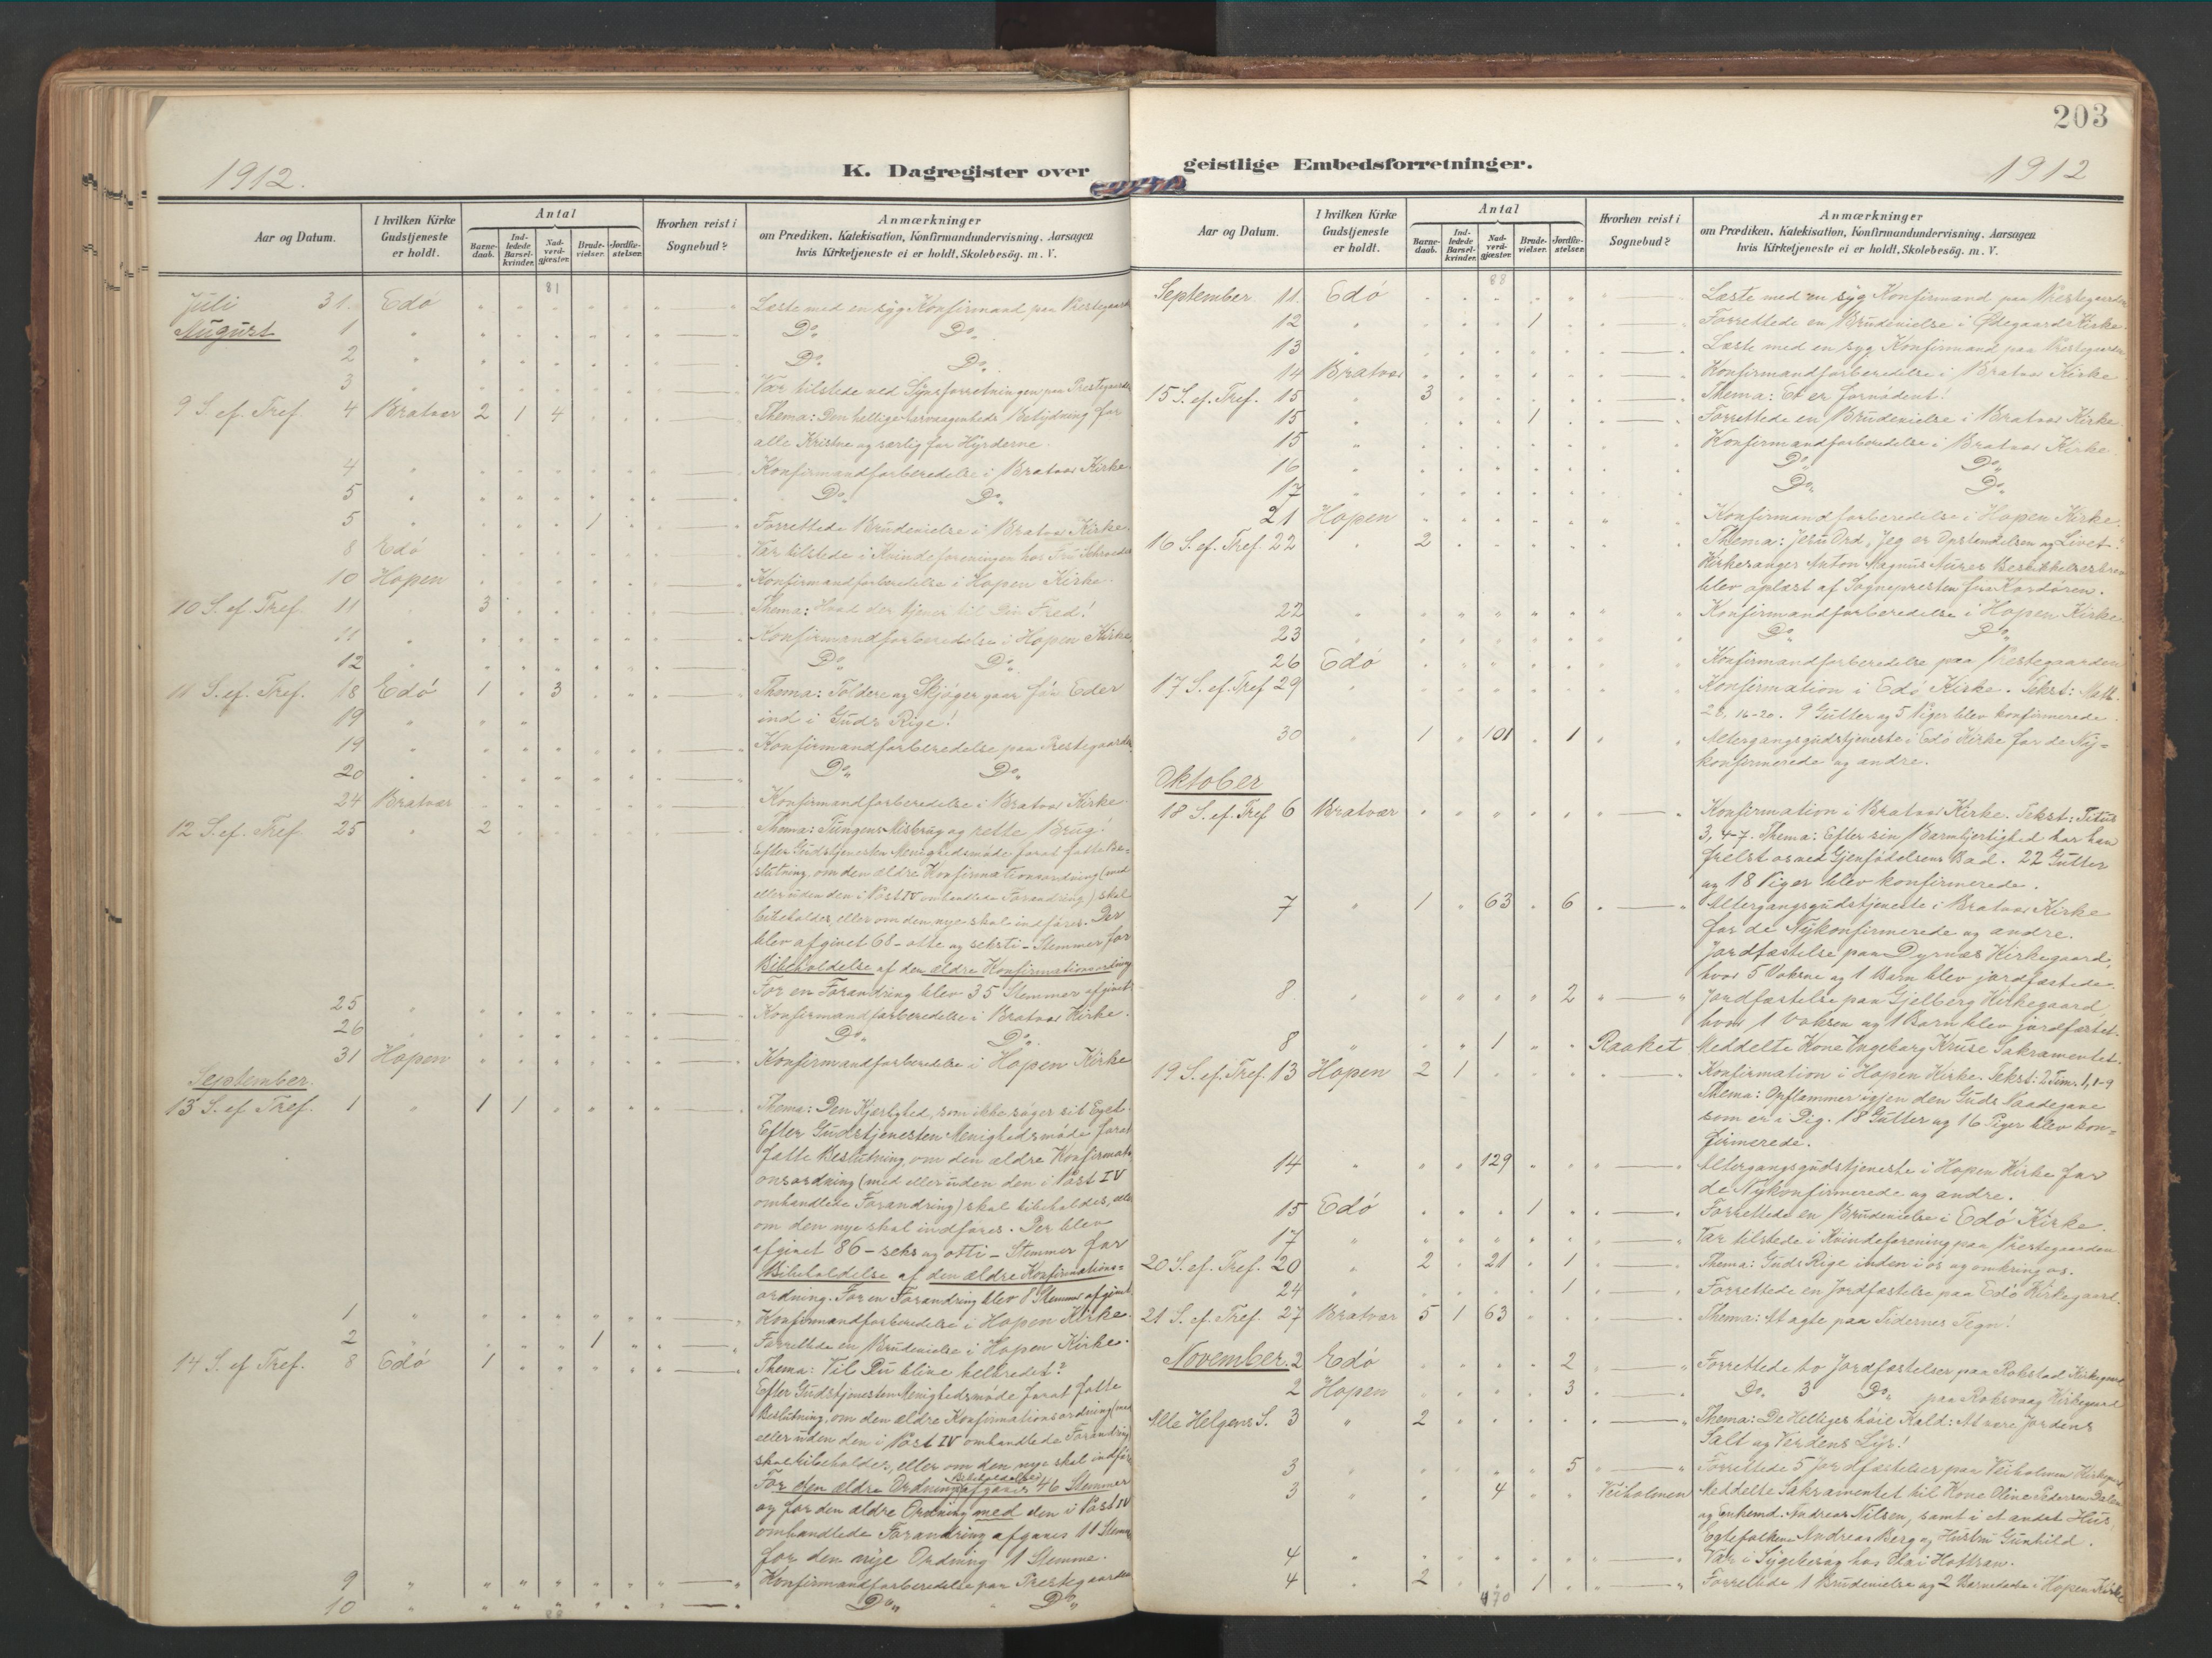 1912.
K. Dagregister over
Aar og Datum.
I hvilken Kirke Gudstjeneste er holdt.
Antal
Barne-daab.
Ind-ledede Barsel-kvinder.
Nad-verd-gjæster.
Brude-vielser.
Jordfæ-stelser.
Hvorhen reist i Sognebud?
Anmærkninger
om Prædiken, Katekisation, Konfirmandundervisning, Aarsagen
hvis Kirketjeneste ei er holdt, Skolebesög. m. V.
81
Juli 31. Edö Læste med en syg Konfirmand paa Prestegaarden
August 1 " Do. Do.
2 " Do. Do.
3 " Var tilstede ved Synsforretningen paa Prestegaarden
9 S. ef. Tref. 4 Bratvær 2 1 4 Thema: Den hellige Betydning for
alle Kristne og særlig for Hyrderne.
4 " Konfirmandforberedelse i Bratvær Kirke.
5 " Do. Do.
5 " 1 Forrettede Brudevielse i Bratvær Kirke.
8 Edö Var tilstede i Kvindeforeningen hos Fru
10 Hopen Konfirmandforberedelse i Hopen Kirke.
10 S. ef. Tref. 11 " 3 Thema: Hvad der tjener til Din Fred!
11 " Konfirmandforberedelse i Hopen Kirke
12 " Do. Do.
11 S. ef. Tref. 18 Edö 1 " 3 Thema: Toldere og Skjöger gaar för Eder
19 " ind i Guds Rige!
19 " Konfirmandforberedelse paa Prestegaarden.
20 " Do. Do.
24 Bratvær Konfirmandforberedelse i Bratvær Kirke.
12 S. ef. Tref. 25 " 2 Thema: Tungens Misbrug og rette Brug!
Efter Gudstjenesten Menighedsmöde forat fatte Be-
slutning, om den ældre Konfirmationsordning (med
eller uden den i Post IV omhandlede Forandring) skal
bibeholdes, eller om den nye skal indföres. Der
blev afgivet 68 - otte og seksti - Stemmer for
Bibeholdelse af den ældre Konfirmationsordning
For en Forandring blev 35 Stemmer afgivet
25 " Konfirmandforberedelse i Bratvær Kirke.
26 " Do. Do.
31 Hopen Konfirmandforberedelse i Hopen Kirke
September.
13 S. ef. Tref. 1 " 1 1 Thema: Den Kjærlighed, som ikke söger sit Eget.
Efter Gudstjenesten Menighedsmöde forat
fatte Beslutning, om den ældre Konfirmati-
onsordning (med eller uden den i Post IV
omhandlede Forandring) skal bibeholdes, eller
om den nye skal indföres. Der blev
afgivet 86 - seks og otti - Stemmer for
Bibeholdelse af den ældre Konfirmations-
ordning. For en Forandring blev 8 Stemmer afgivet
1 " Konfirmandforberedelse i Hopen Kirke.
2 " 1 Forrettede en Brudevielse i Hopen Kirke.
14 S. ef Tref. 8 Edö 1 Thema: Vil Du blive helbredet?
Efter Gudstjenesten Menighedsmöde forat fatte
Beslutning, om den ældre Konfirmationsordning (med
eller uden den i Post IV omhandlede Forandring)
skal bibeholdes, eller om den nye skal indföres
For den ældre Ordnings Bibeholdelse afgaves 46 Stemmer
og for den ældre Ordning med den i Post IV
omhandlede Forandring afgaves 11 Stemmer
for den nye Ordning 1 Stemme.
9 " Konfirmandforberedelse paa Prestegaarden
10 " Do. " Do.
88
203
geistlige Embedsforretninger.
1912
Aar og Datum.
I hvilken Kirke Gudstjeneste er holdt.
Antal
Barne-daab.
Ind-ledede Barsel-kvinder.
Nad-verd-gjæster.
Brude-vielser.
Jordfæ-stelser.
Hvorhen reist i Sognebud?
Anmærkninger
om Prædiken, Katekisation, Konfirmandundervisning, Aarsagen
hvis Kirketjeneste ei er holdt, Skolebesög. m. V.
88
September 11. Edö Læste med en syg Konfirmand paa Prestegaarden
12 " 1 Forrettede en Brudevielse i Ödegaards Kirke.
13 " Læste med en syg Konfirmand paa Prestegaarden
14 Bratvær Konfirmandforberedelse i Bratvær Kirke
15 S. ef. Tref. 15 " 3 Thema: Et er fornödent!
15 " 1 Forrettede en Brudevielse i Bratvær Kirke
15 " Konfirmandforberedelse i Bratvær Kirke.
16 " Do. Do.
17 " Do. Do.
21 Hopen Konfirmandforberedelse i Hopen Kirke.
16 S. ef. Tref. 22 " 2 Thema: Jesu Ord, Jeg er Opstandelsen og Livet.
Kirkesanger Anton Magnus Beskikkelsesbrev
blev oplæst af Sognepresten fra Kordören.
22 " Konfirmandforberedelse i Hopen Kirke
23 " Do. Do.
26 Edö Konfirmandforberedelse paa Prestegaarden
17 S. ef. Tref 29 " Konfirmation i Edö Kirke. Tekst: Matt.
28, 16-20. 9 Gutter og 5 Piger blev konfirmerede.
30 " 1 " 101 " 1 Altergangsgudstjeneste i Edö Kirke for de Ny-
konfirmerede og andre.
Oktober
18 S. ef. Tref 6 Bratvær Konfirmation i Bratvær Kirke. Tekst: Titus
3, 4-7. Thema: Efter sin Barmhjertighed har han
frelst os ved Gjenfödelsens Bad. 22 Gutter
og 18 Piger blev konfirmerede.
7 " 1 " 63 " 6 Altergangsgudstjeneste i Bratvær Kirke
for de Nykonfirmerede og andre.
Jordfæstelse paa Dyrnæs Kirkegaard,
hvor 5 Voksne og 1 Barn blev jordfæstede.
8 " 2 Jordfæstelse paa Gjelberg Kirkegaard,
hvor 1 Voksen og 1 Barn blev jordfæstet.
8 " 1 Raaket Meddelte Kone Ingeborg Kruse Sakramentet.
19 S. ef. Tref. 13 Hopen 2 1 Konfirmation i Hopen Kirke. Tekst: 2 Tim. 1, 1-9
Thema: Opflammer igjen den Guds Naadegave
som er i Dig. 18 Gutter og 16 Piger blev kon-
firmerede.
14 " 129 Altergangsgudstjeneste i Hopen Kirke for
de Nykonfirmerede og andre.
15 Edö 1 Forrettede en Brudevielse i Edö Kirke.
17 " Var tilstede i Kvindeforening paa Prestegaarden
20 S. ef. Tref. 20 " 2 " 21 " 1 Thema: Guds Rige inden i os og omkring os.
24 " 1 Forrettede en Jordfæstelse paa Edö Kirkegaard.
21 S. ef. Tref. 27 Bratvær 5 1 63 Thema: At agte paa Tidernes Tegn!
November. 2 Edö 2 Forrettede to Jordfæstelser paa Rokstad Kirkegaard
2 Hopen 3 Do. 3 Do. paa Roksvaag Kirkegaard
Alle Helgens S. 3 " 2 Thema: De Helliges höie Kald: At være Jordens
Salt og Verdens Lys!
3 " 5 Forrettede 5 Jordfæstelser paa Veiholmen Kirkegaard
3 " 4 Veiholmen Meddelte Sakramentet til Kone Oline Pedersen Dalen
og Enkemd. Andreas Nilsen, samt i et andet Hus,
Egtefolkene Andreas Berg og Hustru Gunhild.
4 " Var i Sygebesög hos
4 " 2 1 Forrettede 1 Brudevielse og 2 Barnedaab i Hopen Kirke
470